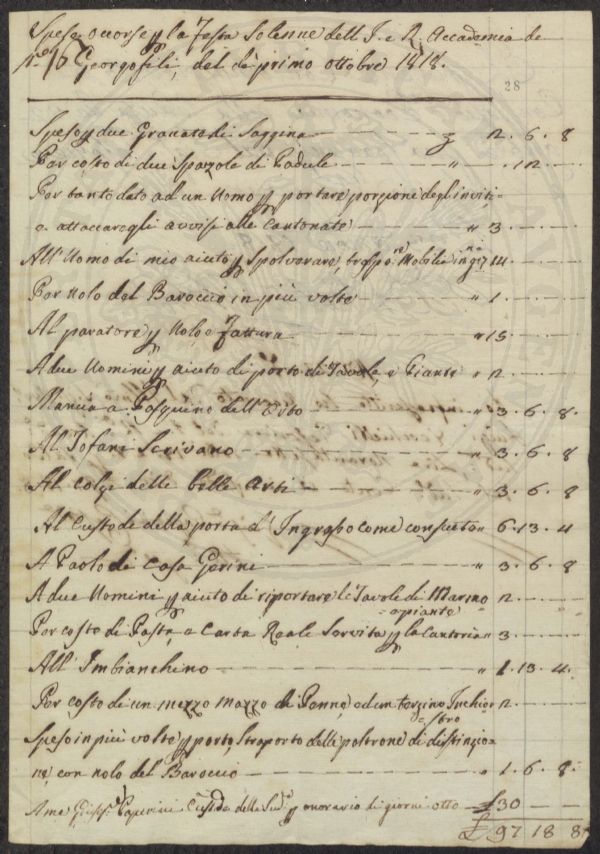 Spese occorse p la Festa Solenne dell I. e R. Accademia de
Georgofili, del dì primo ottobre 1818.
28
Speso p due Granate di Saggina — 2. 6. 8
Per costo di due Spazole di Padule — " — . 12 . —
Per tanto dato ad un Uomo p portare porzione degli inviti
e attaccare gli avvisi alle Cantonate — " 3 . —
All' Uomo di mio aiuto p Spolverare, Mobilia 14 . —
Per Nolo del Baroccio in più volte — " 1 . —
Al paratore p Nolo e Fattura — " 15 —
A due Uomini p aiuto di porto di Tavole, e Piante " 2 . —
Mancia a Pasquino dell' Orto — " 3 . 6 . 8.
Al Tofani Scrivano — " 3 . 6 . 8
Al colgi delle belle Arti — " 3 . 6 . 8
Al Custode della porta d' Ingresso come consueto " 6 . 13 . 4
A Paolo di Casa Gerini — " 3 . 6 . 8
A due Uomini p aiuto di riportare le Tavole di Marmo 2 . —
e piante
Per costo di Pasta, e Carta Reale Servita p la Cantoria " 3 . —
All' Imbianchino — " 1 . 13 . 4.
Per costo di un mezzo mazzo di Penne, ed un terzino Inchio= 2 . —
=stro
Speso in più volte p porto, e trasporto delle poltrone di distinzio=
ne, con nolo del Baroccio — " 1 . 6 . 8.
A me Giusep.e Paperini Custode della Sud.a p onorario di giorni otto — £ 30 — —
£ 97 18 8